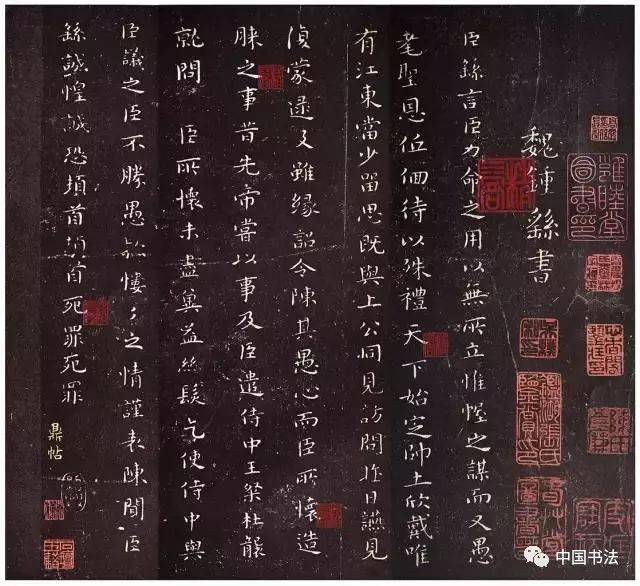 魏鍾繇書
臣繇言臣力命之用以無所立惟幄之謀而又愚
耄聖恩低佪待以殊禮天下始定帥士欣戴唯
有江東當少留思既與上公同見訪問昨日讌見
復蒙逮及雖緣詔令陳其愚心而臣所懷造
膝之事昔先帝嘗以事及臣遣侍中王粲杜襲
就問臣所懷未盡冀益絲髮乞使侍中與
臣議之臣不勝愚款慺々之情謹表陳聞臣
繇誠惶誠恐頓首頓首死罪死罪
鼎帖
中国书法